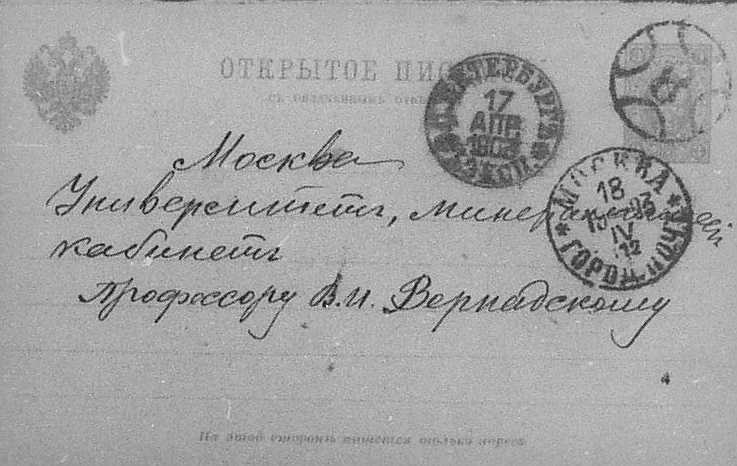 ОТКРЫТОЕ ПИС
С.ПЕТЕРБУРГЪ
17
АПР
МОСКВА
18
IV
12
ГОРОД. ПОЧТ.
Москва
Университетъ, Минералогический
кабинетъ
Профессору В.И. Вернадскому
4
На этой сторонѣ пишется только адресъ